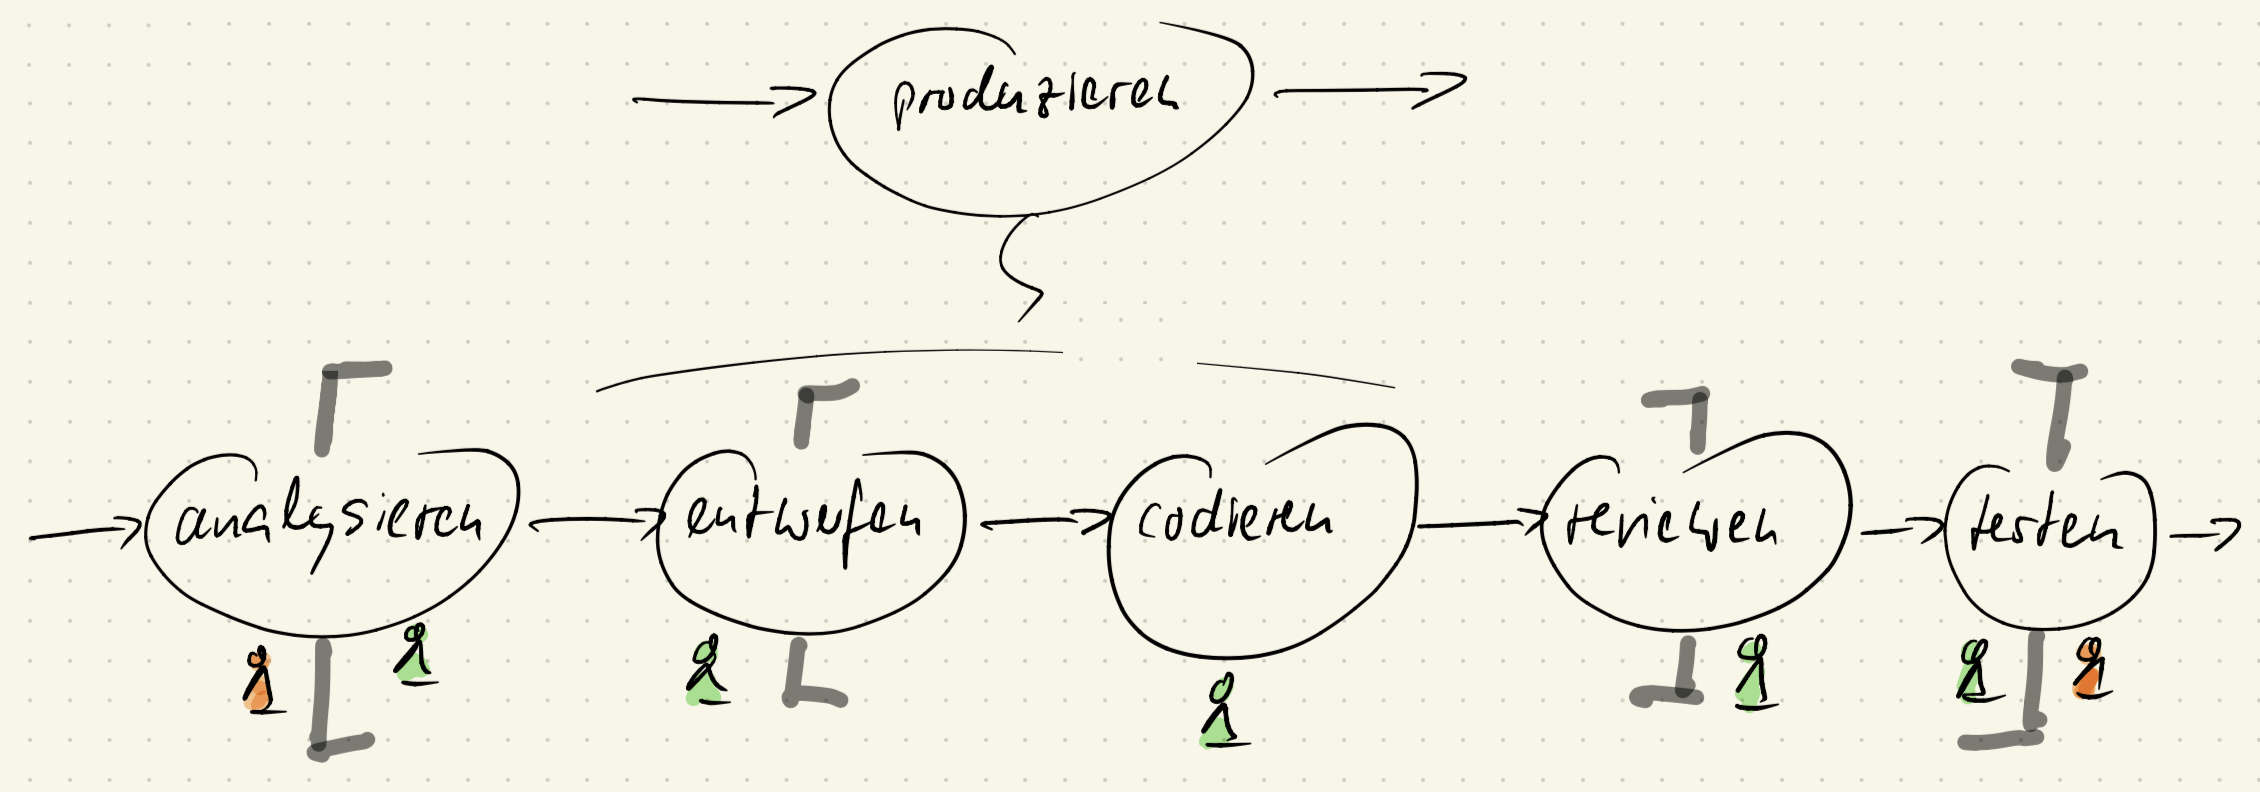 produzieren
analysieren
entwerfen
codieren
reviewen
testen